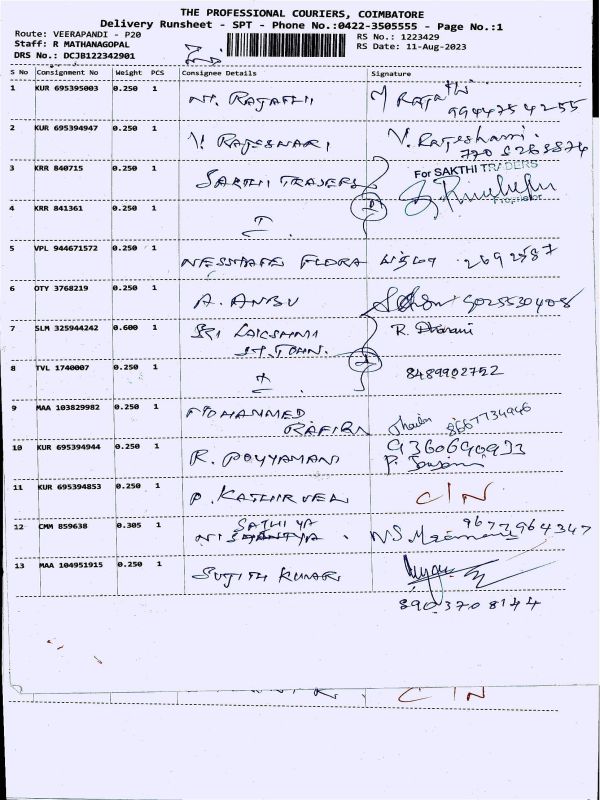 THE PROFESSIONAL COURIERS, COIMBATORE
Delivery Runsheet - SPT - Phone No.:0422-3505555 - Page No.:1
Route: VEERAPANDI - P20
RS No.: 1223429
Staff: R MATHANAGOPAL
RS Date: 11-Aug-2023
DRS No.: DCJB122342901
S No Consignment No Weight PCS Consignee Details Signature
1 KUR 695395003 0.250 1
9944754255
2 KUR 695394947 0.250 1 V. RAJESWARI V. Rajeshwari.
3 KRR 840715 0.250 1 SAKTHI TRADERS For SAKTHI TRADERS
Proprietor
4 KRR 841361 0.250 1
5 VPL 944671572 0.250 1 FLORA 2692587
6 OTY 3768219 0.250 1 A. ANBU 9025530408
7 SLM 325944242 0.600 1 SRI LAKSHMI R.
8 TVL 1740007 0.250 1 8489902752
9 MAA 103829982 0.250 1 MOHAMMED
8667734946
10 KUR 695394944 0.250 1 R. POYYAMANI
P.
11 KUR 695394853 0.250 1 P. KATHIRVEL C/N
12 CMM 859638 0.305 1 SATHIYA
13 MAA 104951915 0.250 1 SUJITH KUMAR
8903708144
C/N